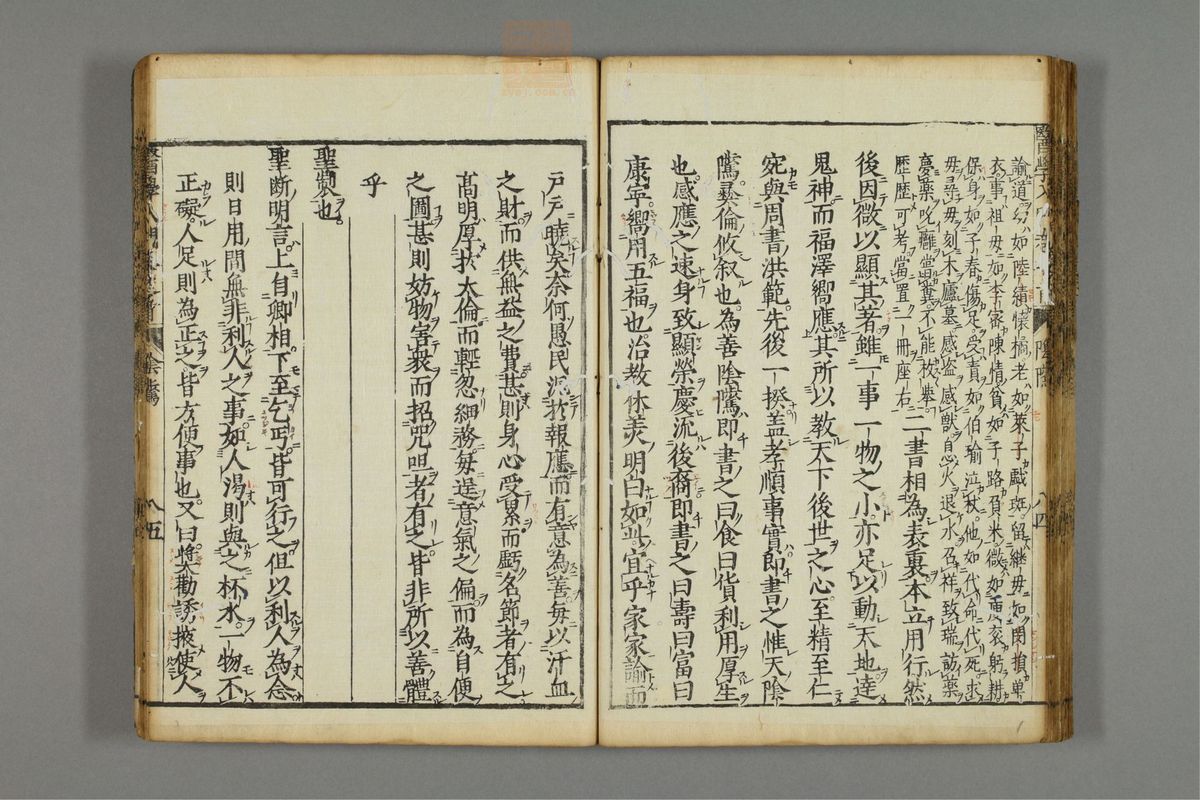 諭道幼如陸績懷橘老如萊子戲斑留繼母如閔損單
衣事祖母如李密陳情貧如子路負米微如黃衣躬耕
保身如子春傷足受責如伯瑜泣杖他如代命代死求
母尋母刻木廬墓感盜感獸自火退水召祥致瑞訪藥
夢藥吮癰嘗糞不能枚舉
歷歷可考當置一冊座右二書相為表裏本立用行然
後因微以顯其著雖一事一物之小亦足以動天地達
鬼神而福澤嚮應其所以教天下後世之心至精至仁
宛與周書洪範先後一揆蓋孝順事實即書之惟天陰
騭彝倫攸叙也為善陰騭即書之曰食曰貨利用厚生
也感應之速身致顯榮慶流後裔即書之曰壽曰富曰
康寧嚮用五福也治教休美明白如此宜乎家家諭而
醫學入門 陰騭 八四
戶戶曉矣奈何愚民泥於報應而有意為善每以汗血
之財而供無益之費甚則身心受累而虧名節者有之
高明厚於大倫而輕忽細務每逞意氣之偏而為自便
之圖甚則妨物害衆而招咒咀者有之皆非所以善體
聖製也
乎
聖斷明言上自卿相下至乞丐皆可行之但以利人為念
則日用間無非利人之事如人渴則與之杯水一物不
正礙人足則為正之皆方便事也又曰將勸誘掖使人
醫學入門 陰騭 八五
zyej.com.cn